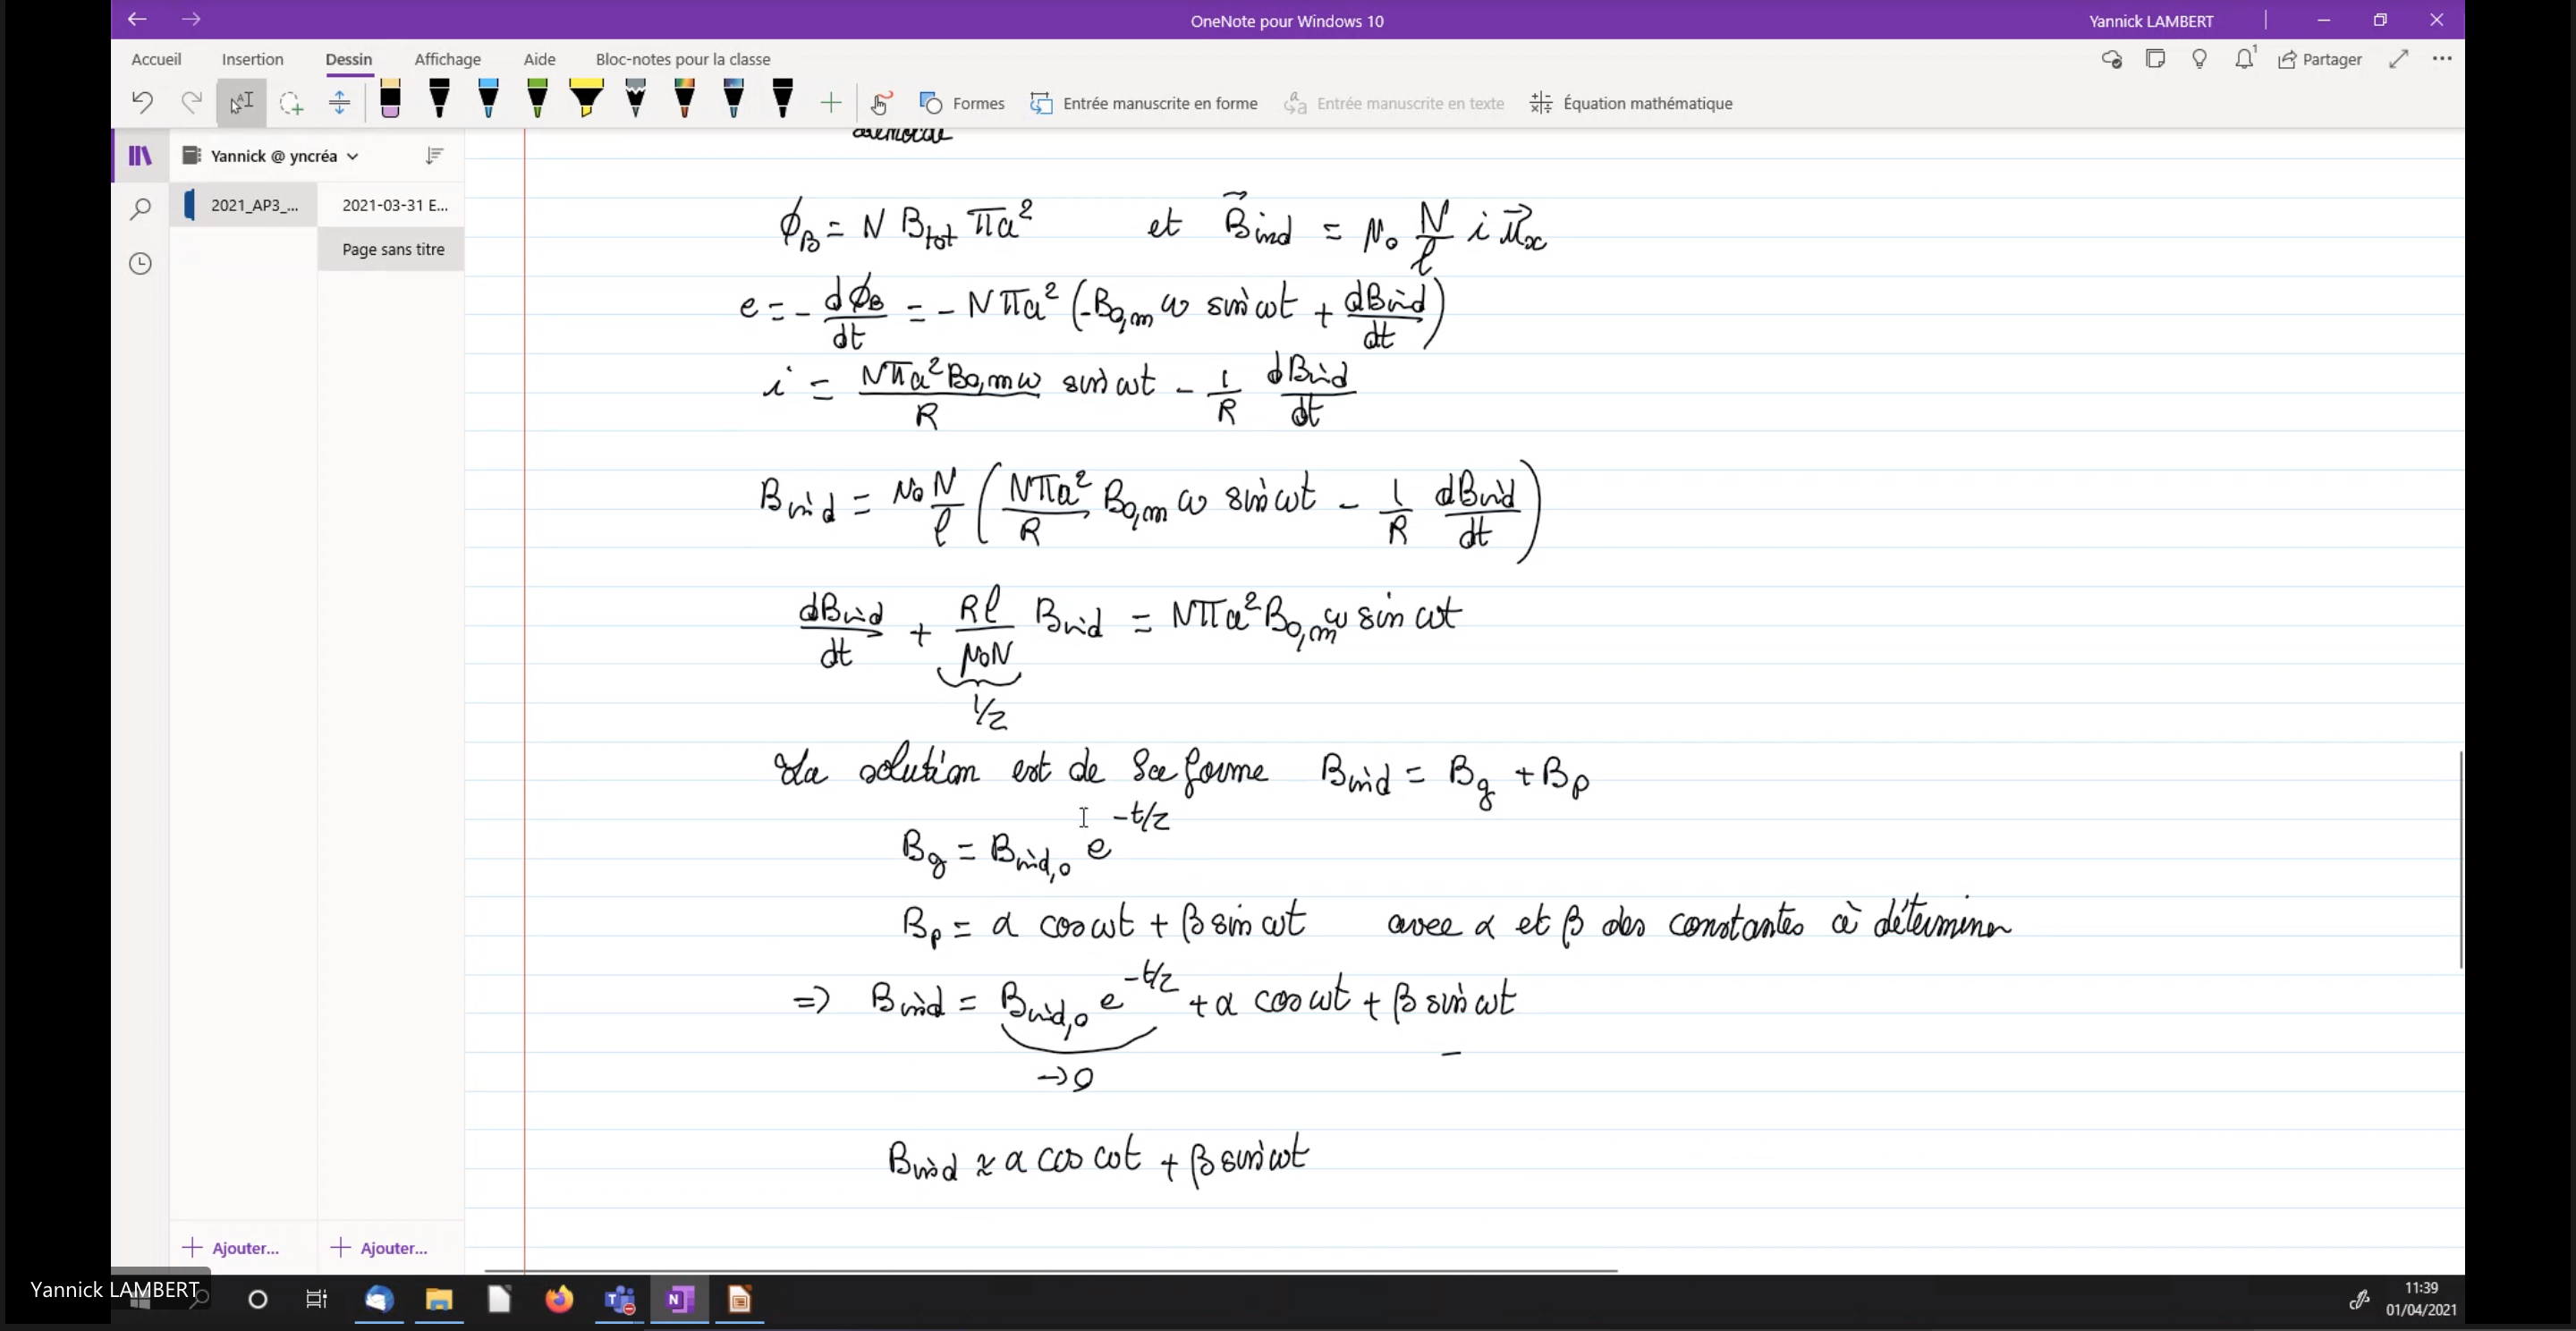 OneNote pour Windows 10
Yannick LAMBERT
Accueil Insertion Dessin Affichage Aide Bloc-notes pour la classe
1
Partager
Formes
Entrée manuscrite en forme
Entrée manuscrite en texte
Équation mathématique
Yannick @ yncréa
2021_AP3_...
2021-03-31 E...
Page sans titre
ϕ_B = N B_tot πa² et B⃗_ind = μ₀ N/l i u⃗_x
e = - dϕ_B/dt = - Nπa² (-B_0,m ω sin ωt + dB_ind/dt)
i = Nπa² B_0,m ω/R sin ωt - 1/R dB_ind/dt
B_ind = μ₀N/l (Nπa²/R B_0,m ω sin ωt - 1/R dB_ind/dt)
dB_ind/dt + Rl/μ₀N B_ind = Nπa² B_0,m ω sin ωt
1/τ
La solution est de la forme B_ind = B_g + B_p
B_g = B_ind,0 e^(-t/τ)
B_p = α cos ωt + β sin ωt avec α et β des constantes à déterminer
=> B_ind = B_ind,0 e^(-t/τ) + α cos ωt + β sin ωt
→0
B_ind ≈ α cos ωt + β sin ωt
Ajouter...
Ajouter...
Yannick LAMBERT
11:39
01/04/2021